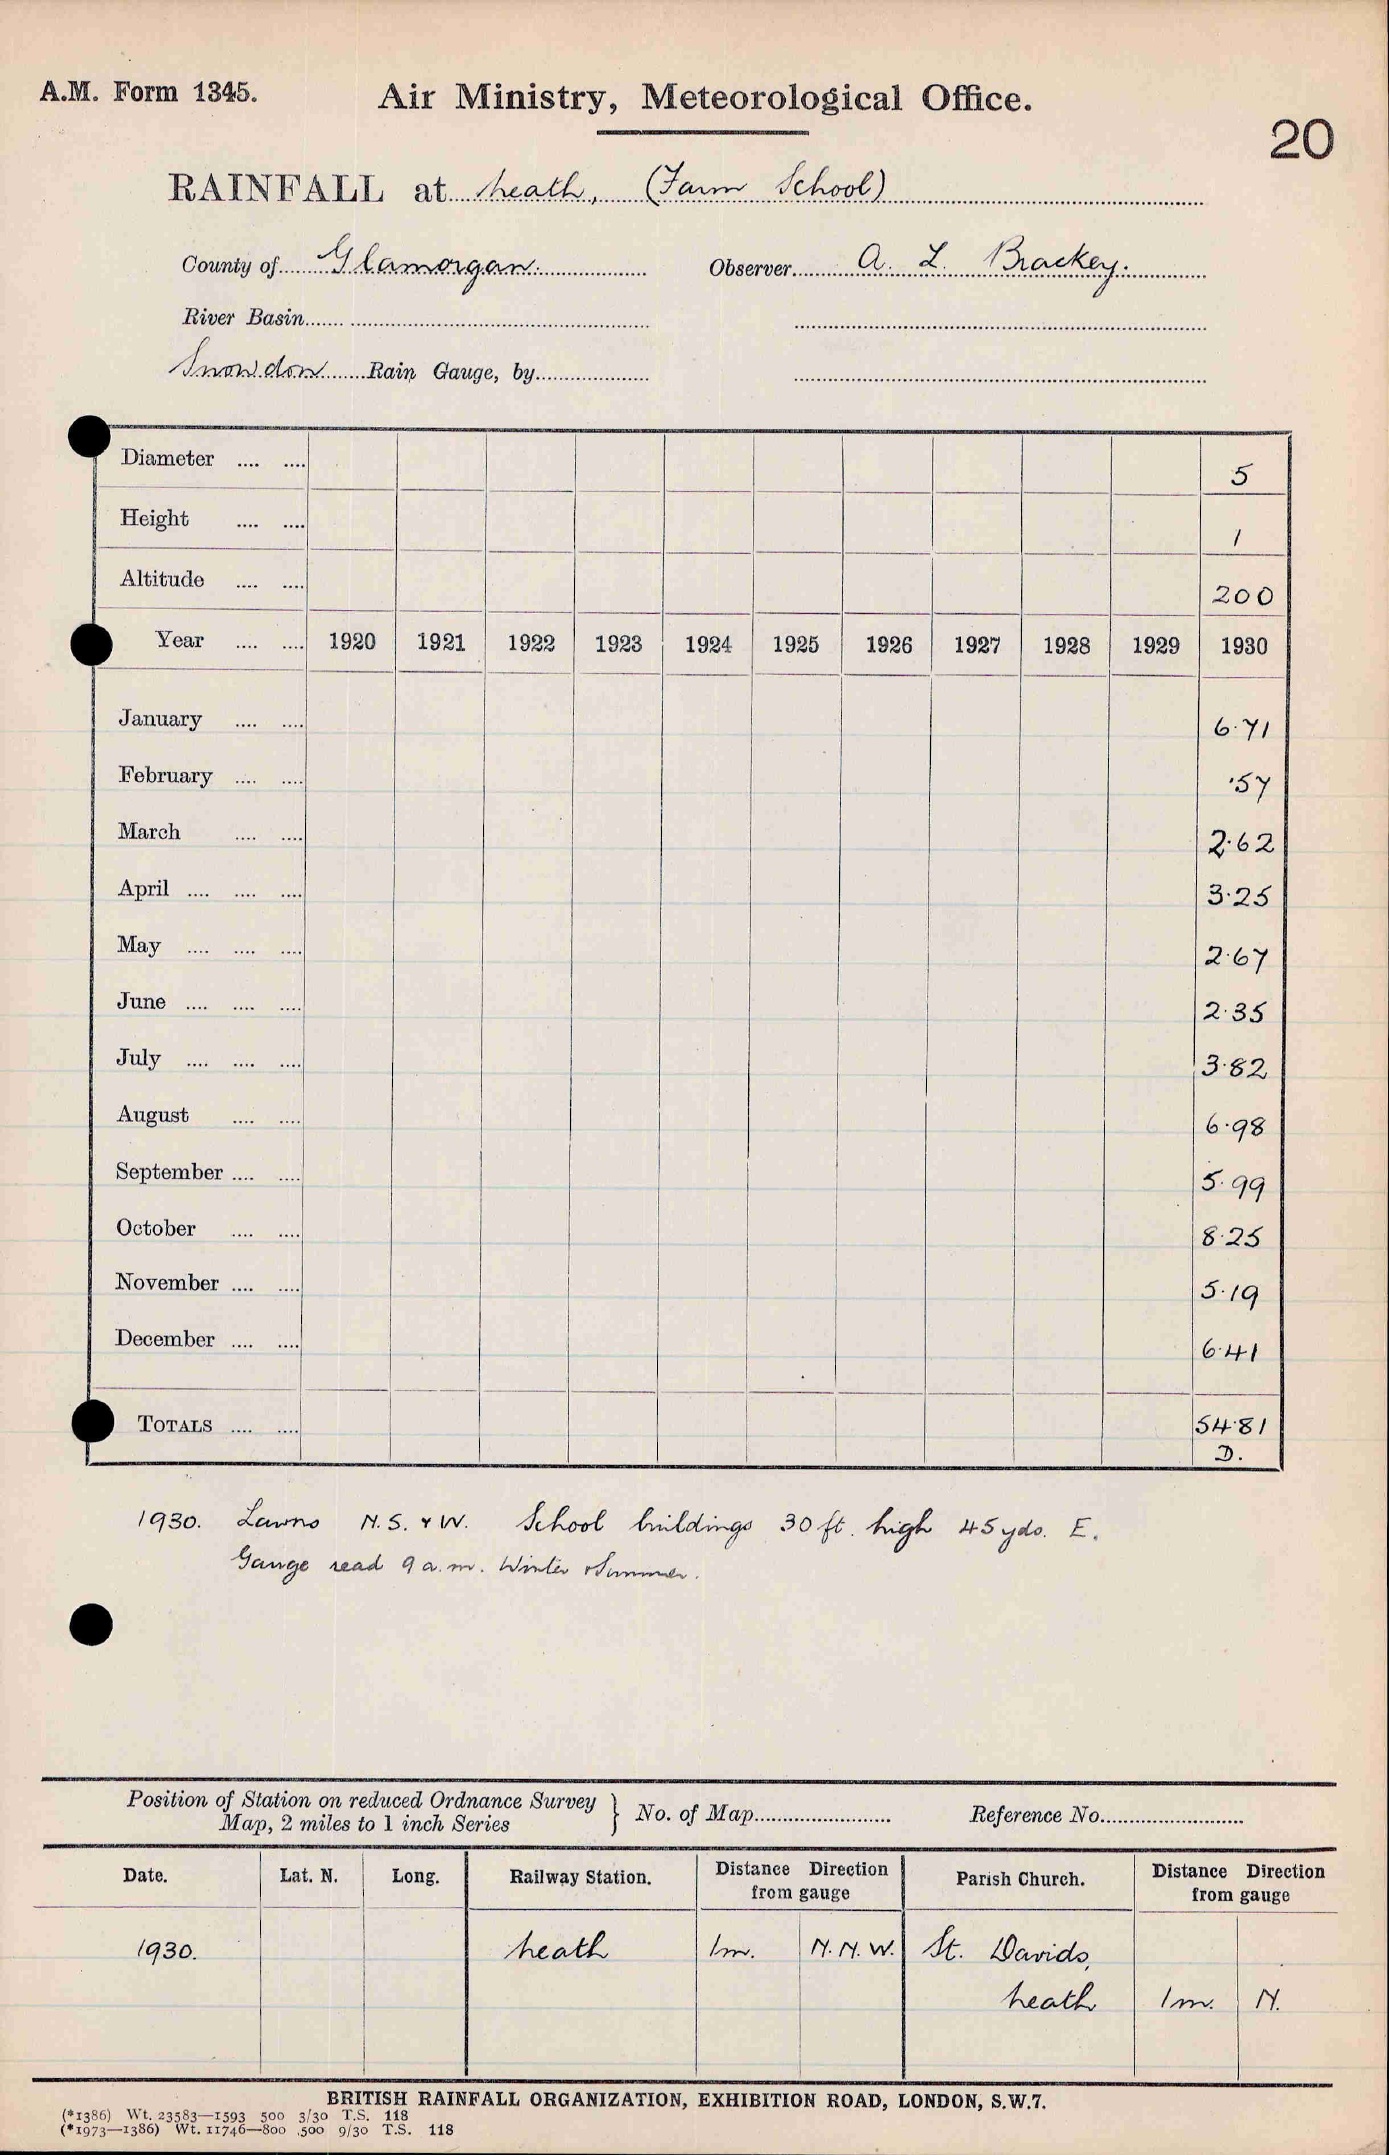 A.M. Form 1345.
Air Ministry, Meteorological Office.
20
RAINFALL at Neath, (Farm School)
County of Glamorgan. Observer A. L. Brackey.
River Basin
Snowdon Rain Gauge, by
Diameter 5
Height 1
Altitude 200
Year 1920 1921 1922 1923 1924 1925 1926 1927 1928 1929 1930
January 6.71
February .57
March 2.62
April 3.25
May 2.67
June 2.35
July 3.82
August 6.98
September 5.99
October 8.25
November 5.19
December 6.41
TOTALS 54.81
D.
1930. Lawns N. S. & W. School buildings 30 ft. high 45 yds. E.
Gauge read 9 a.m. Winter & Summer.
Position of Station on reduced Ordnance Survey
Map, 2 miles to 1 inch Series } No. of Map Reference No.
Date. Lat. N. Long. Railway Station. Distance Direction from gauge Parish Church. Distance Direction from gauge
1930. Neath 1m. N.N.W. St. Davids,
Neath 1m. N.
BRITISH RAINFALL ORGANIZATION, EXHIBITION ROAD, LONDON, S.W.7.
(*1386) Wt. 23583—1593 500 3/30 T.S. 118
(*1973—1386) Wt. 11746—800 500 9/30 T.S. 118